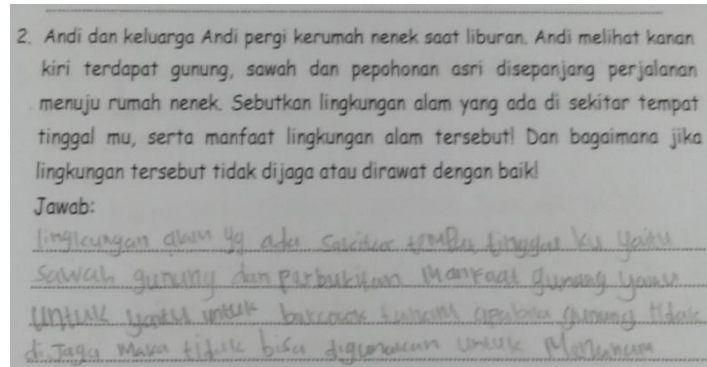 2. Andi dan keluarga Andi pergi kerumah nenek saat liburan. Andi melihat kanan
kiri terdapat gunung, sawah dan pepohonan asri disepanjang perjalanan
menuju rumah nenek. Sebutkan lingkungan alam yang ada di sekitar tempat
tinggal mu, serta manfaat lingkungan alam tersebut! Dan bagaimana jika
lingkungan tersebut tidak dijaga atau dirawat dengan baik!
Jawab:
lingkungan alam yg ada sekitar tinggal ku yaitu
sawah gunung dan perbukitan Manfaat gunung yaitu
Untuk yaitu untuk bercocok tanam apabila gunung tidak
di Jaga Maka tidak bisa digunakan untuk